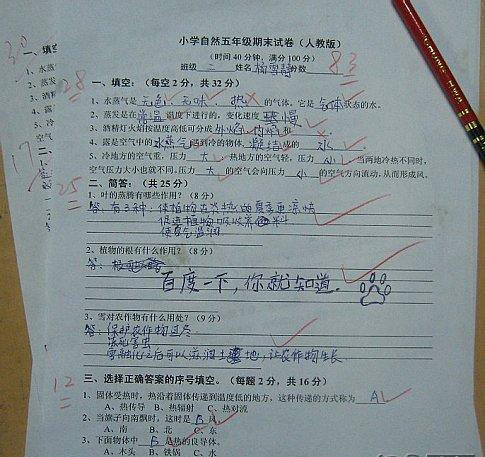 小学自然五年级期末试卷（人教版）
（时间40分钟，满分100分）
班级 三 姓名 分数 83
28
一、填空：（每空2分，共32分）
1、水蒸气是 无色、无味、热 的气体，它是 气体 状态的水。
2、蒸发是在 常温 温度下进行的，变化速度 慢
3、酒精灯火焰按温度高低可分成 外焰、内焰 和
4、露是空气中的 水蒸气 遇到冷的物体，凝结 成的 水
5、冷地方的空气重，压力 大 热地方的空气轻，压力 小 当两地冷热不同时，
空气压力大小也就不同。压力 大 的空气会向压力 小 的空气方向流动，从而形成风。
25
二、简答：（共25分）
1、叶的蒸腾有哪些作用？（8分）
答：有3种：保植物在炎热的夏季更凉快
促进植物吸收养料
使空气湿润
2、植物的根有什么作用？（8分）
答：
百度一下，你就知道.
3、雪对农作物有什么用处？（9分）
答：保护农作物过冬
冻死害虫
雪融化之后可以滋润土地，让农作物生长
12
三、选择正确答案的序号填空。（每题2分，共16分）
1、固体受热时，热沿着固体传递到温度低的地方，这种传递的方式称为 A
A、热传导 B、热辐射 C、热对流
2、当旗子向南飘时，这时是 B 风
A、南 B、北 C、东
3、下面物体中 B 是热的良导体。
A、木头 B、铁锅 C、水